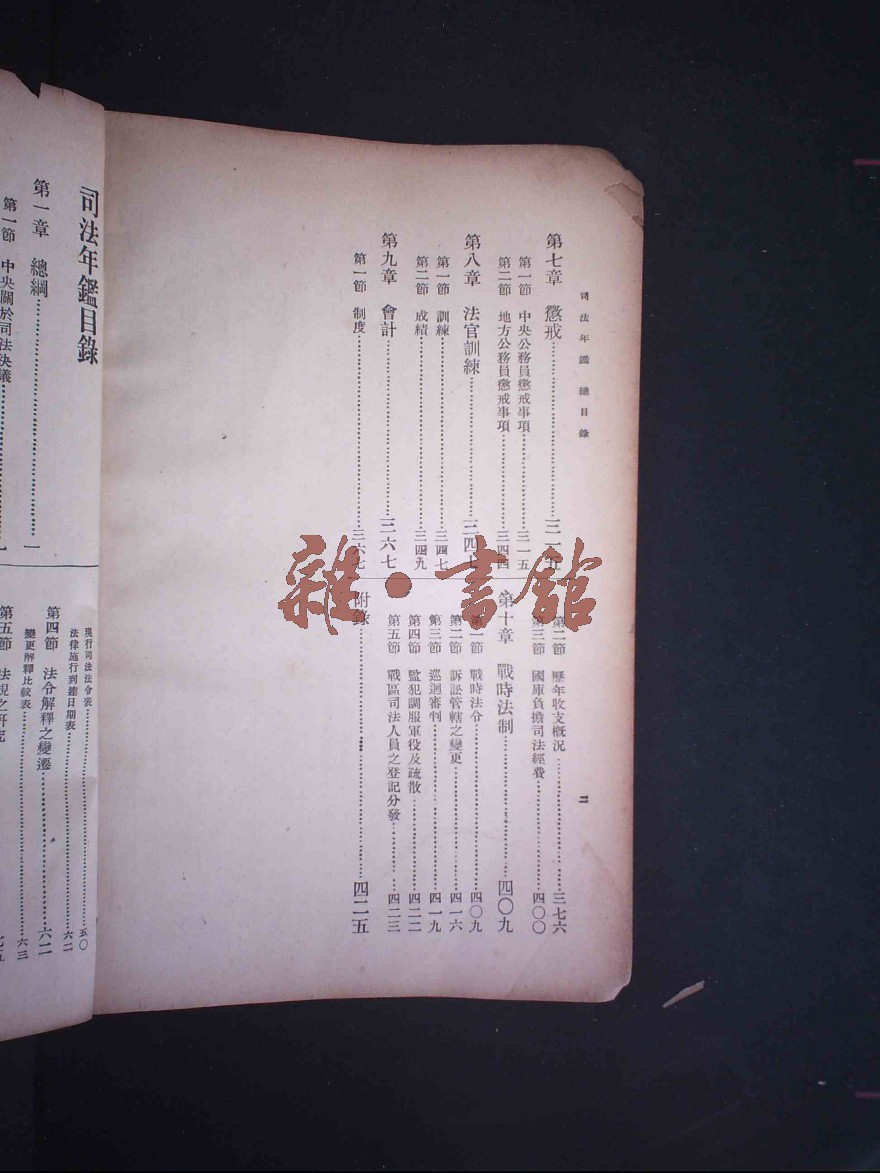 司法年鑑 總目錄
二
第七章 懲戒……三一五
第一節 中央公務員懲戒事項……三一五
第二節 地方公務員懲戒事項……三四四
第八章 法官訓練……三四七
第一節 訓練……三四七
第二節 成績……三四九
第九章 會計……三六七
第一節 制度……三六七
第二節 歷年收支概況……三七六
第三節 國庫負擔司法經費……四〇〇
第十章 戰時法制……四〇九
第一節 戰時法令……四〇九
第二節 訴訟管轄之變更……四一六
第三節 巡迴審判……四一九
第四節 監犯調服軍役及疏散……四二二
第五節 戰區司法人員之登記分發……四二三
附錄……四二五
雜·書館
司法年鑑目錄
第一章 總綱……一
第一節 中央關於司法決議……一
現行司法法令表……五〇
法律施行到達日期表……六二
第四節 法令解釋之變遷……六二
變更解釋比較表……六三
第五節 法規之研究